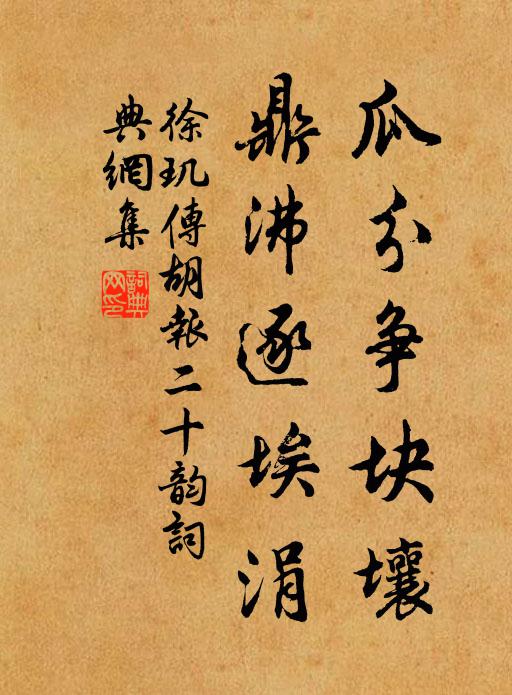 瓜分争块壤
鼎沸逐埃涓
徐玑傳胡報二十韵詞
典網集
詞典
网印